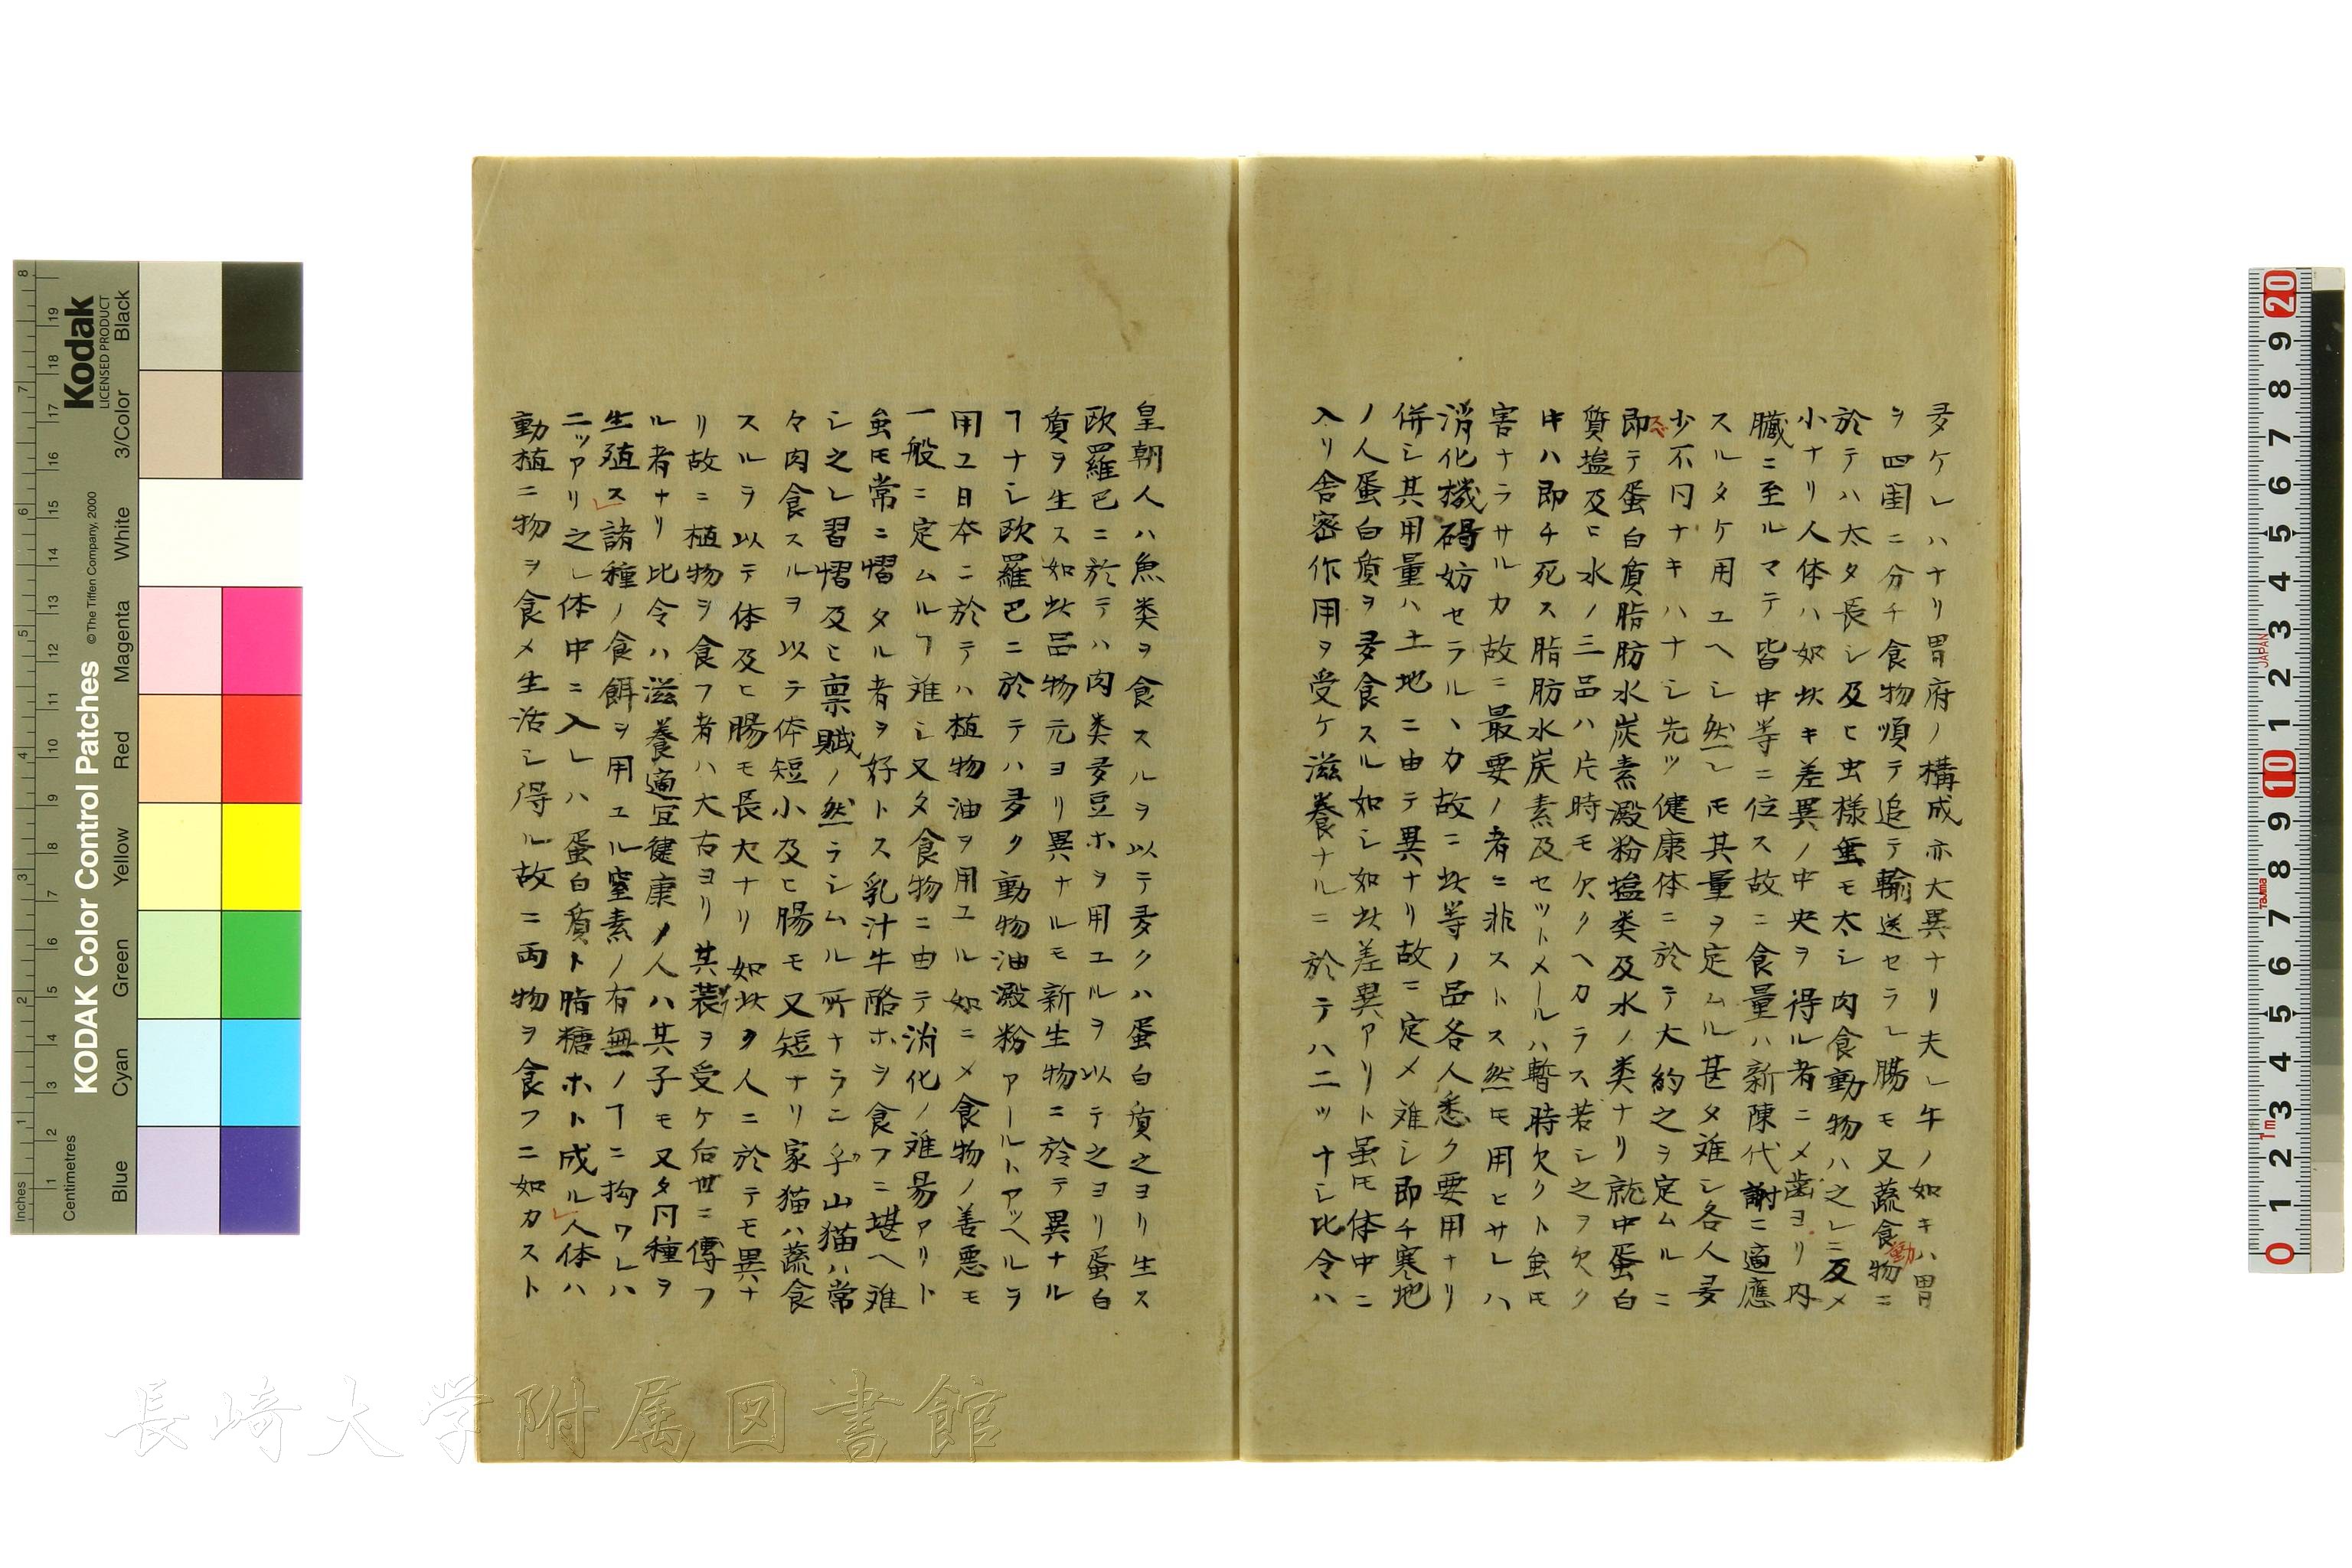 多ケレハナリ胃府ノ構成亦大異ナリ夫レ牛ノ如キハ胃
ヲ四囿ニ分チ食物順テ追テ輸送セラレ腸モ又蔬食物ニ
動
於テハ太タ長シ及ヒ虫様垂モ太シ肉食動物ハ之レニ反メ
小ナリ人体ハ如此キ差異ノ中央ヲ得ル者ニメ歯ヨリ内
臓ニ至ルマテ皆中等ニ位ス故ニ食量ハ新陳代謝ニ適應
スルタケ用ユヘシ然レ𪜈其量ヲ定ムル甚タ難シ各人多
少不同ナキハナシ先ツ健康体ニ於テ大約之ヲ定ムルニ
即テ蛋白質脂肪水炭素澱粉塩类及水ノ类ナリ就中蛋白
質塩及ヒ水ノ三品ハ片時モ欠クヘカラス若シ之ヲ欠ク
キハ即チ死ス脂肪水炭素及セツトメールハ暫時欠クト虽𪜈
害ナラサルカ故ニ最要ノ者ニ非ストス然𪜈用ヒサレハ
消化機碍妨セラルヽカ故ニ此等ノ品各人悉ク要用ナリ
併シ其用量ハ土地ニ由テ異ナリ故ニ定メ难シ即チ寒地
ノ人蛋白質ヲ多食スル如シ如此差異アリト虽𪜈体中ニ
入リ舎密作用ヲ受ケ滋養ナルニ於テハ二ツナシ比令ハ
皇朝人ハ魚类ヲ食スルヲ以テ多クハ蛋白質之ヨリ生ス
欧羅巴ニ於テハ肉类多豆ホヲ用ユルヲ以テ之ヨリ蛋白
質ヲ生ス如此品物元ヨリ異ナルモ新生物ニ於テ異ナル
ヿナシ欧羅巴ニ於テハ多ク動物油澱粉アールトアツヘルヲ
用ユ日本ニ於テハ植物油ヲ用ユル如ニメ食物ノ善悪モ
一般ニ定ムルヿ难シ又タ食物ニ由テ消化ノ难易アリト
虽𪜈常ニ慴タル者ヲ好トス乳汁牛酪ホヲ食フニ堪ヘ难
シ之レ習慴及ヒ禀賦ノ然ラシムル所ナラニ乎山猫ハ常
々肉食スルヲ以テ体短小及ヒ腸モ又短ナリ家猫ハ蔬食
スルヲ以テ体及ヒ腸モ長大ナリ如此ク人ニ於テモ異ナ
リ故ニ植物ヲ食フ者ハ大古ヨリ其装ヲ受ケ后世ニ傳フ
ル者ナリ比令ハ滋養適宜健康ノ人ハ其子モ又タ同種ヲ
生殖ス諸種ノ食餌ヲ用ユル窒素ノ有無ノヿニ拘ワレハ
ニツアリ之レ体中ニ入レハ蛋白質ト脂糖ホト成ル人体ハ
動植ニ物ヲ食メ生活シ得ル故ニ両物ヲ食フニ如カスト
KODAK Color Control Patches
© The Tiffen Company, 2000
Kodak
LICENSED PRODUCT
Inches
Centimetres
Blue
Cyan
Green
Yellow
Red
Magenta
White
3/Color
Black
JAPAN
Tajima
長崎大学附属図書館